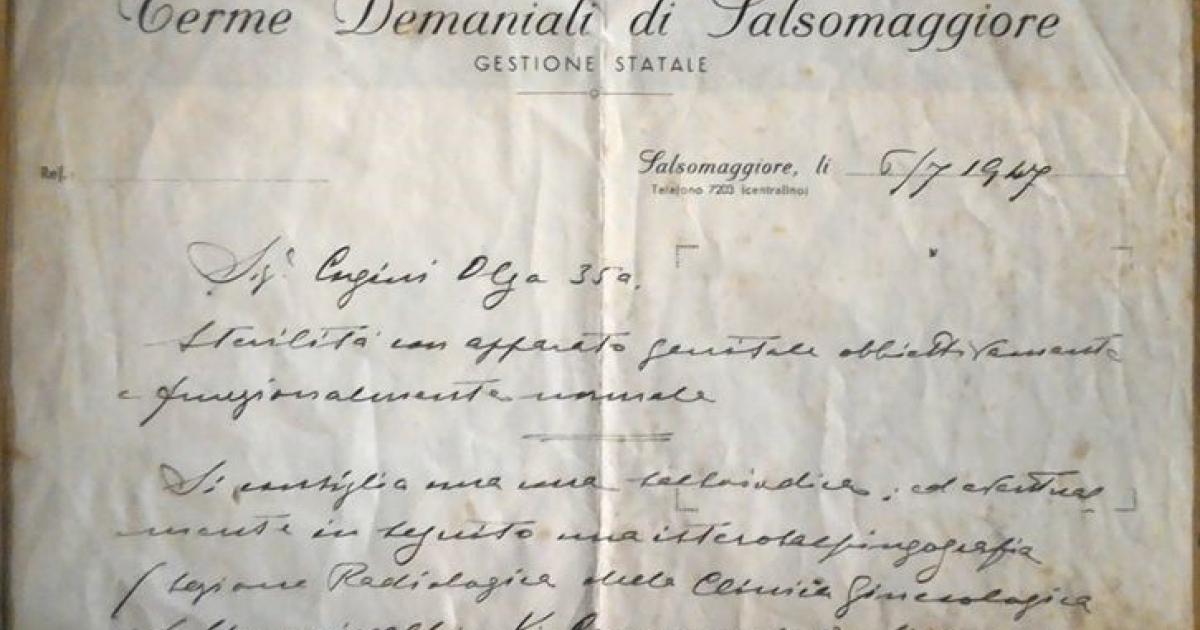 Terme Demaniali di Salsomaggiore
GESTIONE STATALE
Rif.
Salsomaggiore, li 5/7 1947
Telefono 7203 (centralino)
Sigª Cugini Olga 35 a.
Sterilità con apparato genitale obbiettivamente
e funzionalmente normale
Si consiglia una cura salsoiodica; ed eventual
mente in seguito una isterosalpingografia
(Sezione Radiologica della Clinica Ginecologica